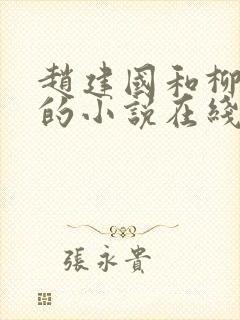 趙建國和柳
的小說在綫
張永貴